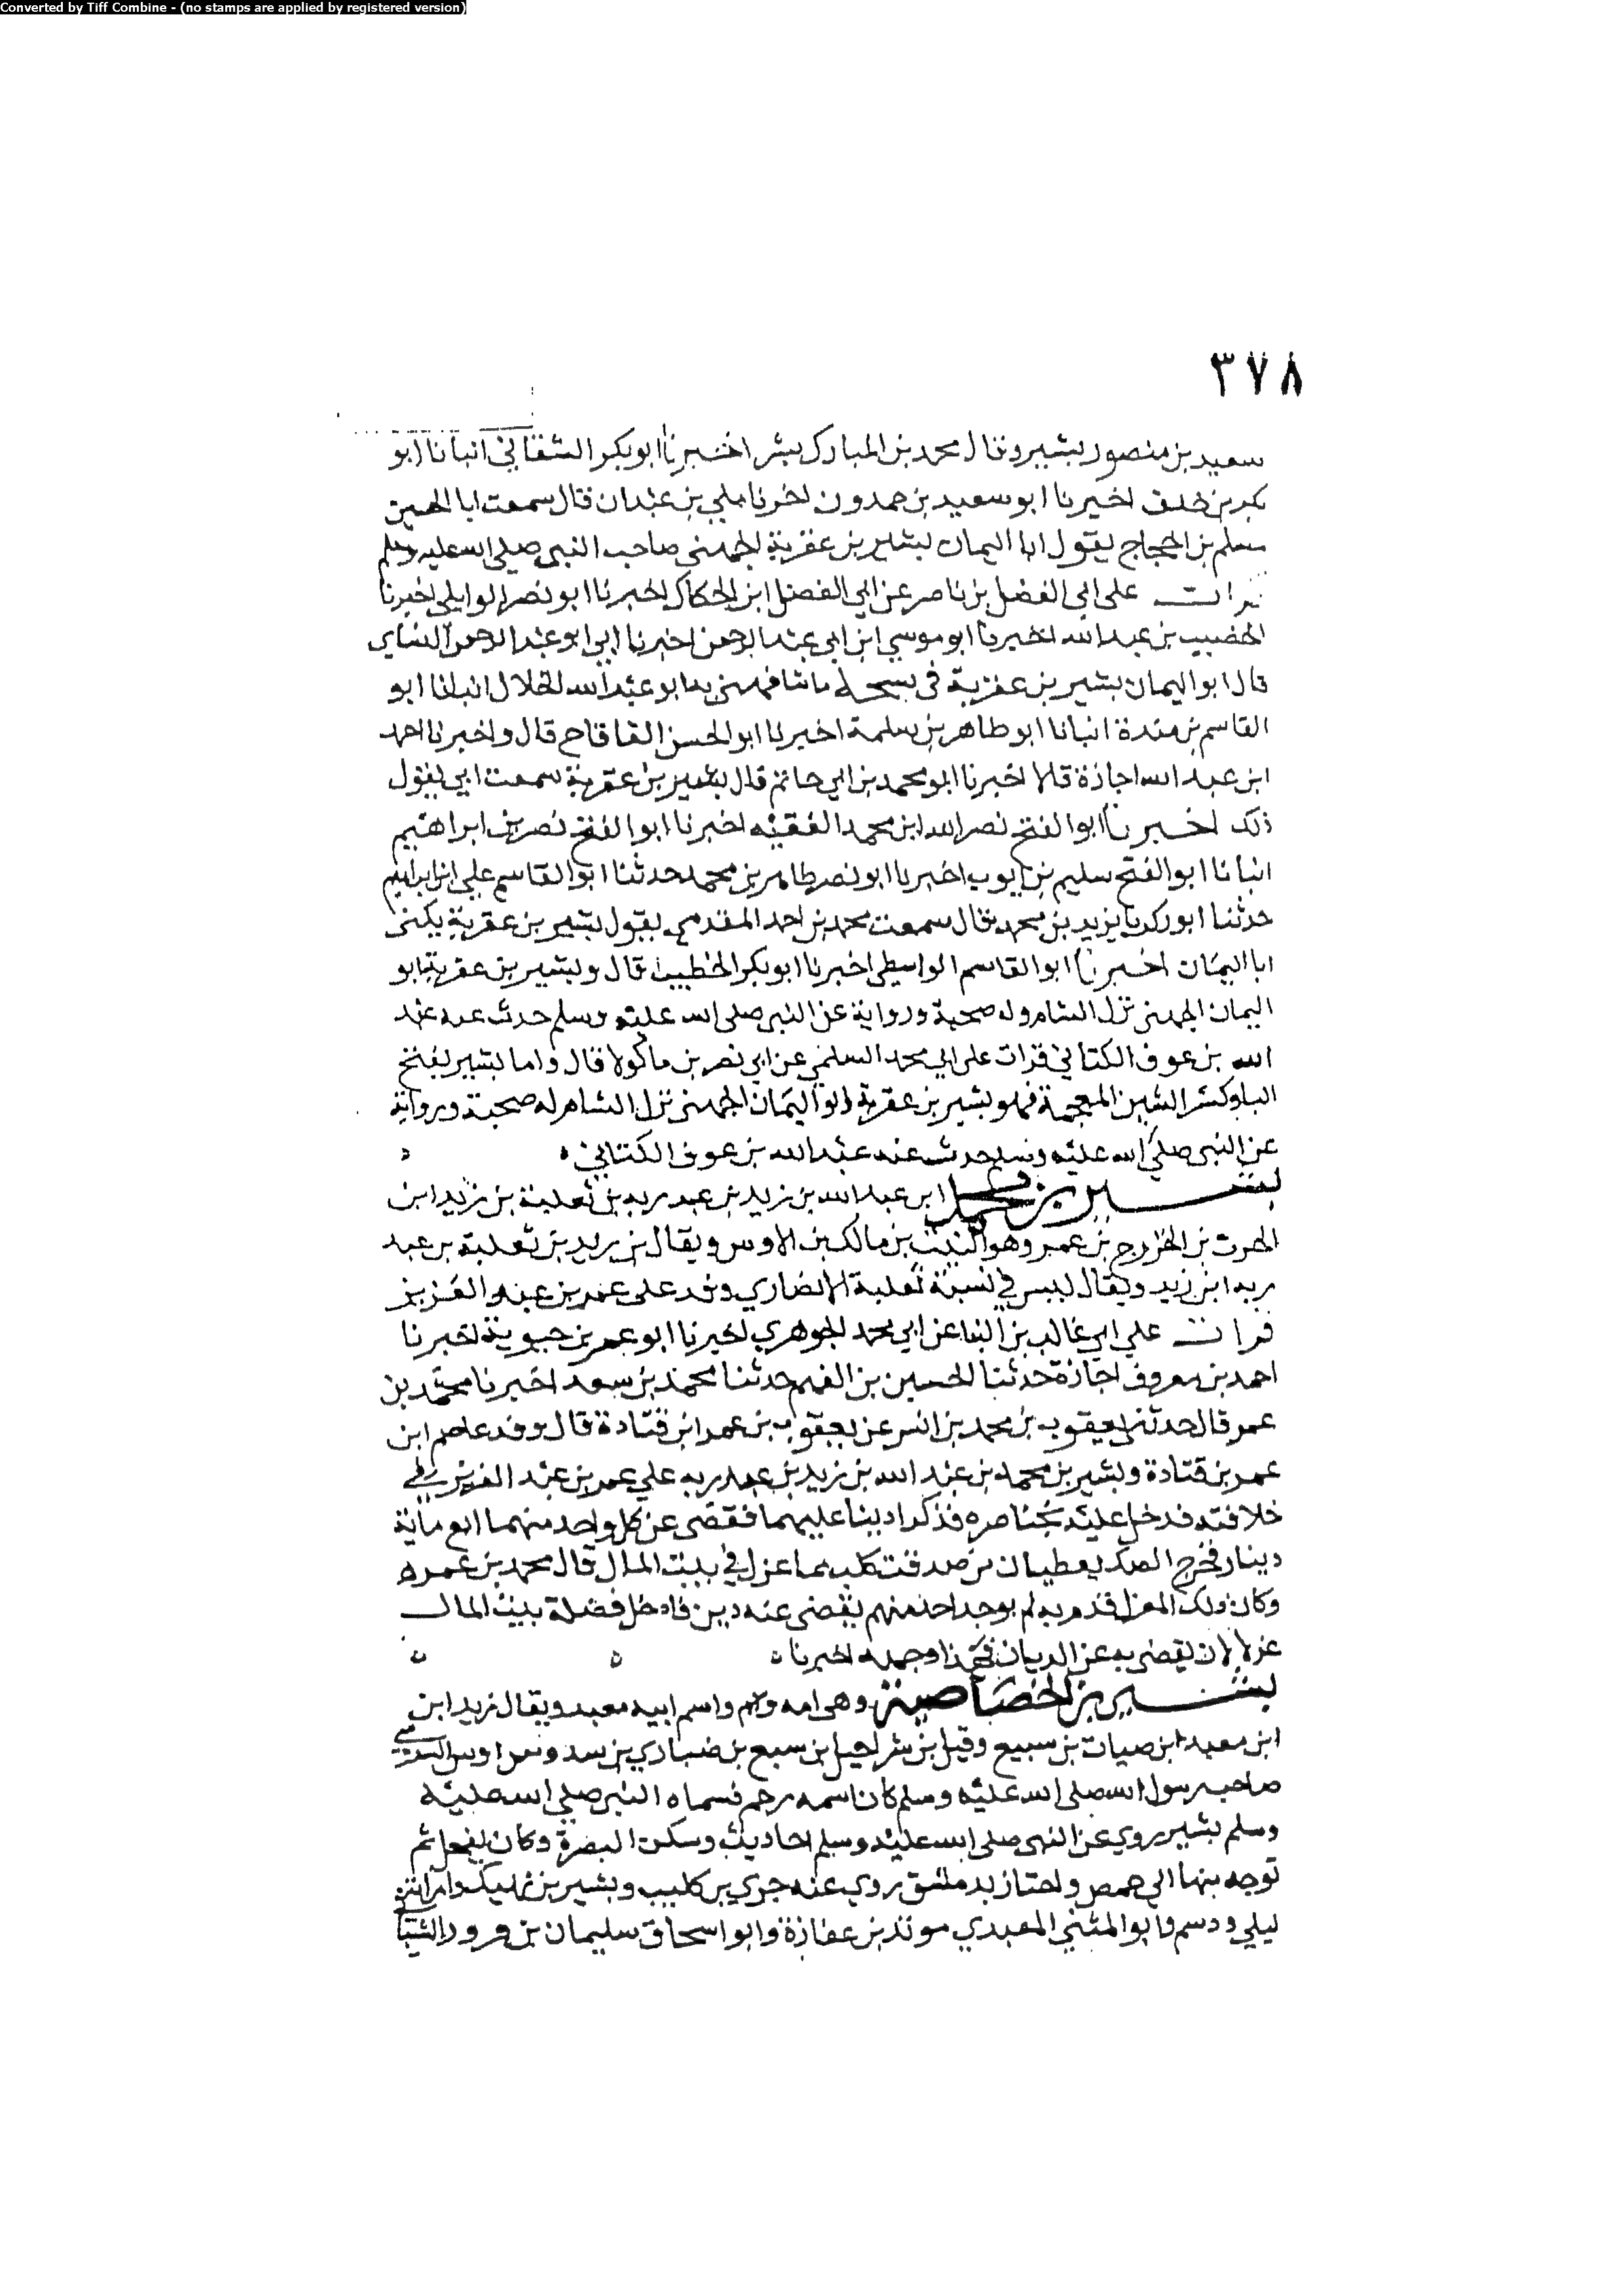 Converted by Tiff Combine - (no stamps are applied by registered version)
٣٧٨
سعيد بن منصور بشير وقال محمد بن المبارك بشر اخبرنا ابو بكر الشقاني انبانا ابو
بكر بن خلف اخبرنا ابو سعيد بن حمدون اخرنا ملي بن عبدان قال سمعت ابا الحسين
مسلم بن الحجاج يقول ابا اليمان بشير بن عقربة الجهني صاحب النبي صلى الله عليه وسلم
قرات على ابي الفضل بن ناصر عن ابي الفضل ابن الحكاك اخبرنا ابو نصر الوايلي اخبرنا
الخصيب بن عبد الله اخبرنا ابو موسي ابن ابي عبد الرحمن اخبرنا ابي ابو عبد الرحمن النساي
قال ابو اليمان بشير بن عقربة في ما شافهني به ابو عبد الله الخلال انبانا ابو
القاسم بن مندة انبانا ابو طاهر بن سلمة اخبرنا ابو الحسن الفافاح قال واخبرنا احمد
ابن عبد الله اجازة قالا اخبرنا ابو محمد بن ابي حاتم قال بشير بن عقربة سمعت ابي يقول
ذلك اخبرنا ابو الفتح نصر الله ابن محمد الفقيه اخبرنا ابو الفتح نصر بن ابراهيم
انبانا ابو الفتح سليم بن ايوب اخبرنا ابو نصر طاهر بن محمد حدثنا ابو القاسم علي ابن ابراهيم
حدثنا ابو زكريا يزيد بن محمد قال سمعت محمد بن احمد المقدمي يقول بشير بن عقربة يكنى
ابا اليمان اخبرنا ابو القاسم الواسطي اخبرنا ابو بكر الخطيب قال وبشير بن عقربة ابو
اليمان الجهني نزل الشام وله صحبة ورواية عن النبي صلى الله عليه وسلم حدث عنه عبد
الله بن عوف الكتاني قرات على ابي محمد السلمي عن ابي نصر بن ماكولا قال واما بشير بفتح
البا وكسر الشين المعجمة فهو بشير بن عقربة ابو اليمان الجهني نزل الشام له صحبة ورواية
عن النبي صلى الله عليه وسلم حدث عنه عبد الله بن عوف الكتاني
بشير بن محمد ابن عبد الله بن زيد بن عبد ربه بن ثعلبة بن زيد ابن
الحرث بن الخزرج بن عمرو وهو النبيت بن مالك بن الاوس ويقال بن زيد بن ثعلبة بن عبد
ربه ابن زيد ويقال ليس في نسبة ثعلبة الانصاري وفد على عمر بن عبد العزيز
قرات على ابي غالب بن البنا عن ابي محمد الجوهري اخبرنا ابو عمر بن حيوية اخبرنا
احمد بن معروف اجازة حدثنا الحسين بن الفهم حدثنا محمد بن سعد اخبرنا محمد بن
عمر قال حدثني يعقوب بن محمد بن انس عن يعقوب بن عمر ابن قتادة قال وفد عاصم ابن
عمر بن قتادة وبشير بن محمد بن عبد الله بن زيد بن عبد ربه علي عمر بن عبد العزيز في
خلافته فدخل عليه بخناصره فذكرا دينا عليهما فقضى عن كل واحد منهما اربع ماية
دينار فخرج الصك يعطيان من صدقت كلب مما عزل في بيت المال قال محمد بن عمره
وكان ذلك المعزل قدم به لم يوجد احد منهم يقضى عنه دين فادخل فضلة بيت المال
عزلا لان يقضى به عن الديان فهذا وجهه اخبرنا
بشير بن الخصاصية وهي امه ولام واسم ابيه معبد ويقال نزيد ابن
ابن معبد ابن صيات بن سبيع وقيل بن شراحيل بن سبع بن ضباري بن سدوس
صاحب رسول الله صلى الله عليه وسلم كان اسمه زحم فسماه النبي صلى الله عليه
وسلم بشير روي عن النبي صلى الله عليه وسلم احاديث وسكن البصرة وكان ثم
توجه منها الي حمص واجتاز بدمشق روي عنه جري بن كليب وبشير بن نهيك وامراته
ليلي ودسم وابو المثني العبدي موثد بن عفازة وابو اسحاق سليمان بن فرور الشيبا